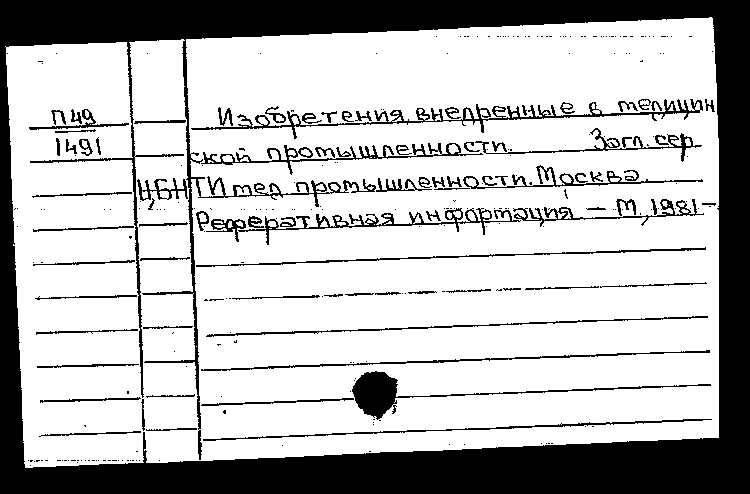 П49 Изобретения, внедренные в медицин
1491 ской промышленности. Загл. сер.
ЦБНТИ мед промышленности. Москва.
Реферативная информация – М, 1981-